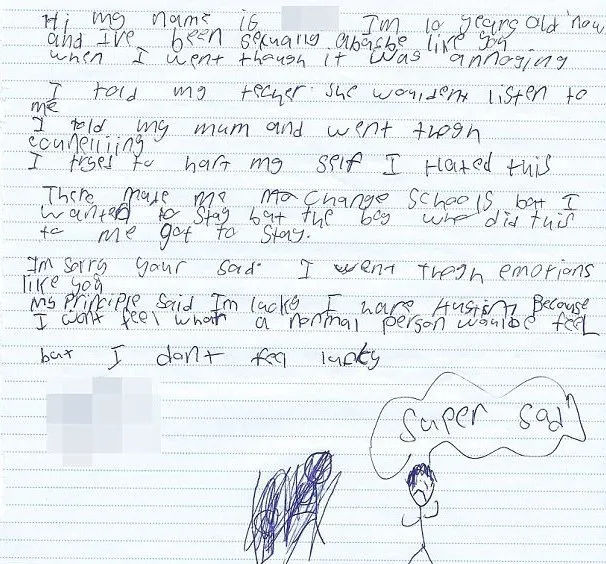 Hi my name is I'm 10 years old now
and I've been sexuaring abasbe like you
when I went though it was annoging
I told my techer she wouldent listen to
me
I told my mum and went trogh
I tryes to hart my self I Hated this
There made me change schools bat I
wanted to stay bat the boy who did this
to me got to stay.
Im sorry your sad I went trogh emotions
like you
my principle said Im lucky I have Because
I wont feel what a normal person would be feel
bat I don't feel lucky
super sad